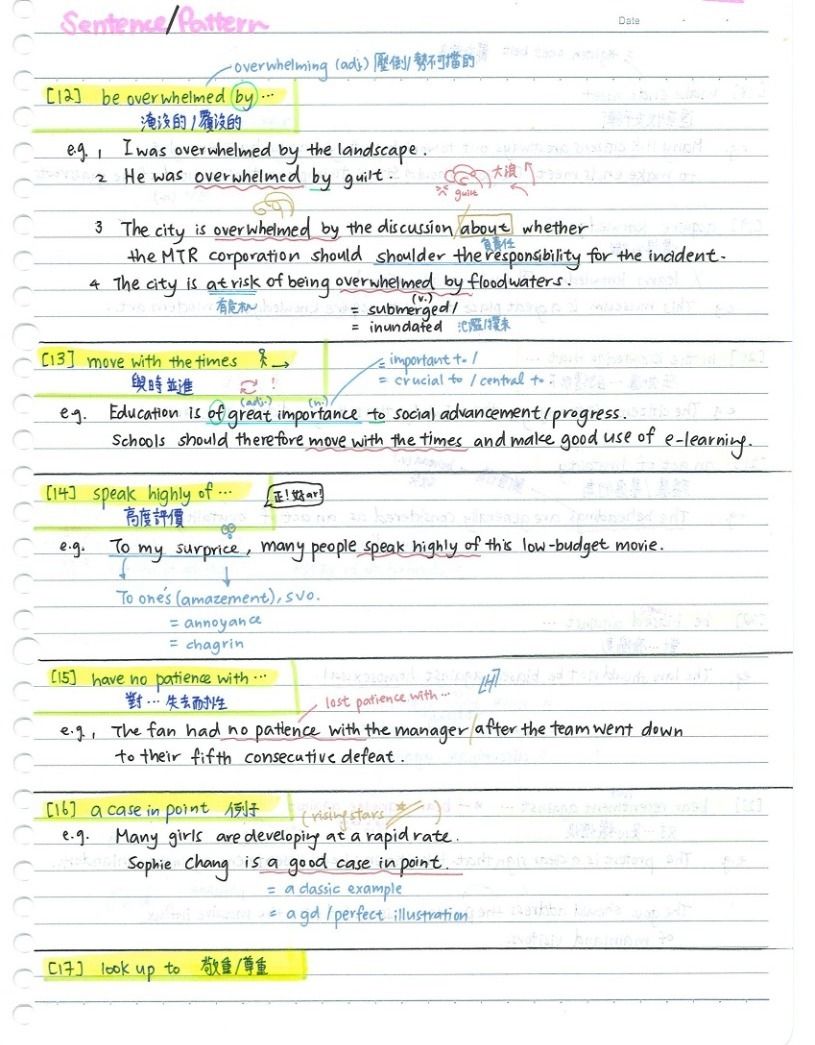 Sentence/Pattern
Date
overwhelming (adj) 壓倒/勢不可擋的
[12] be overwhelmed by ...
淹沒的/覆沒的
e.g. 1 I was overwhelmed by the landscape.
2 He was overwhelmed by guilt.
大浪
guilt
3 The city is overwhelmed by the discussion about whether
負責任
the MTR corporation should shoulder the responsibility for the incident.
4 The city is at risk of being overwhelmed by floodwaters.
有危機
(v.)
= submerged/
= inundated
[13] move with the times
與時並進
!
= important to /
= crucial to / central to
(adj.) (n.)
e.g. Education is of great importance to social advancement/progress.
Schools should therefore move with the times and make good use of e-learning.
[14] speak highly of ...
正!好ar!
高度評價
e.g. To my surprice, many people speak highly of this low-budget movie.
To one's (amazement), SVO.
= annoyance
= chagrin
[15] have no patience with ...
對... 失去耐性
lost patience with ...
e.g. 1 The fan had no patience with the manager / after the team went down
to their fifth consecutive defeat.
[16] a case in point 例子
(rising stars)
e.g. Many girls are developing at a rapid rate.
Sophie Chang is a good case in point.
= a classic example
= a gd / perfect illustration
[17] look up to 敬重/尊重